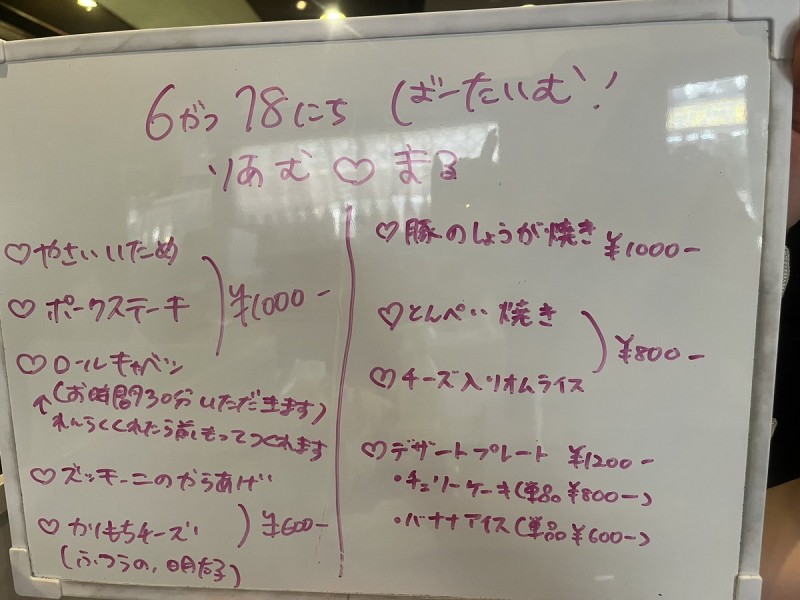 6がつ18にち ばーたいむ!
りあむ♡まる
♡やさいいため
♡ポークステーキ
¥1000-
♡ロールキャベツ
↑(お時間30分いただきます)
れんらくくれたら前もってつくれます
♡ズッキーニのからあげ
♡かりもちチーズ
(ふつうの,明太子)
¥600-
♡豚のしょうが焼き ¥1000-
♡とんぺい焼き
♡チーズ入りオムライス
¥800-
♡デザートプレート ¥1200-
・チェリーケーキ(単品¥800-)
・バナナアイス(単品¥600-)